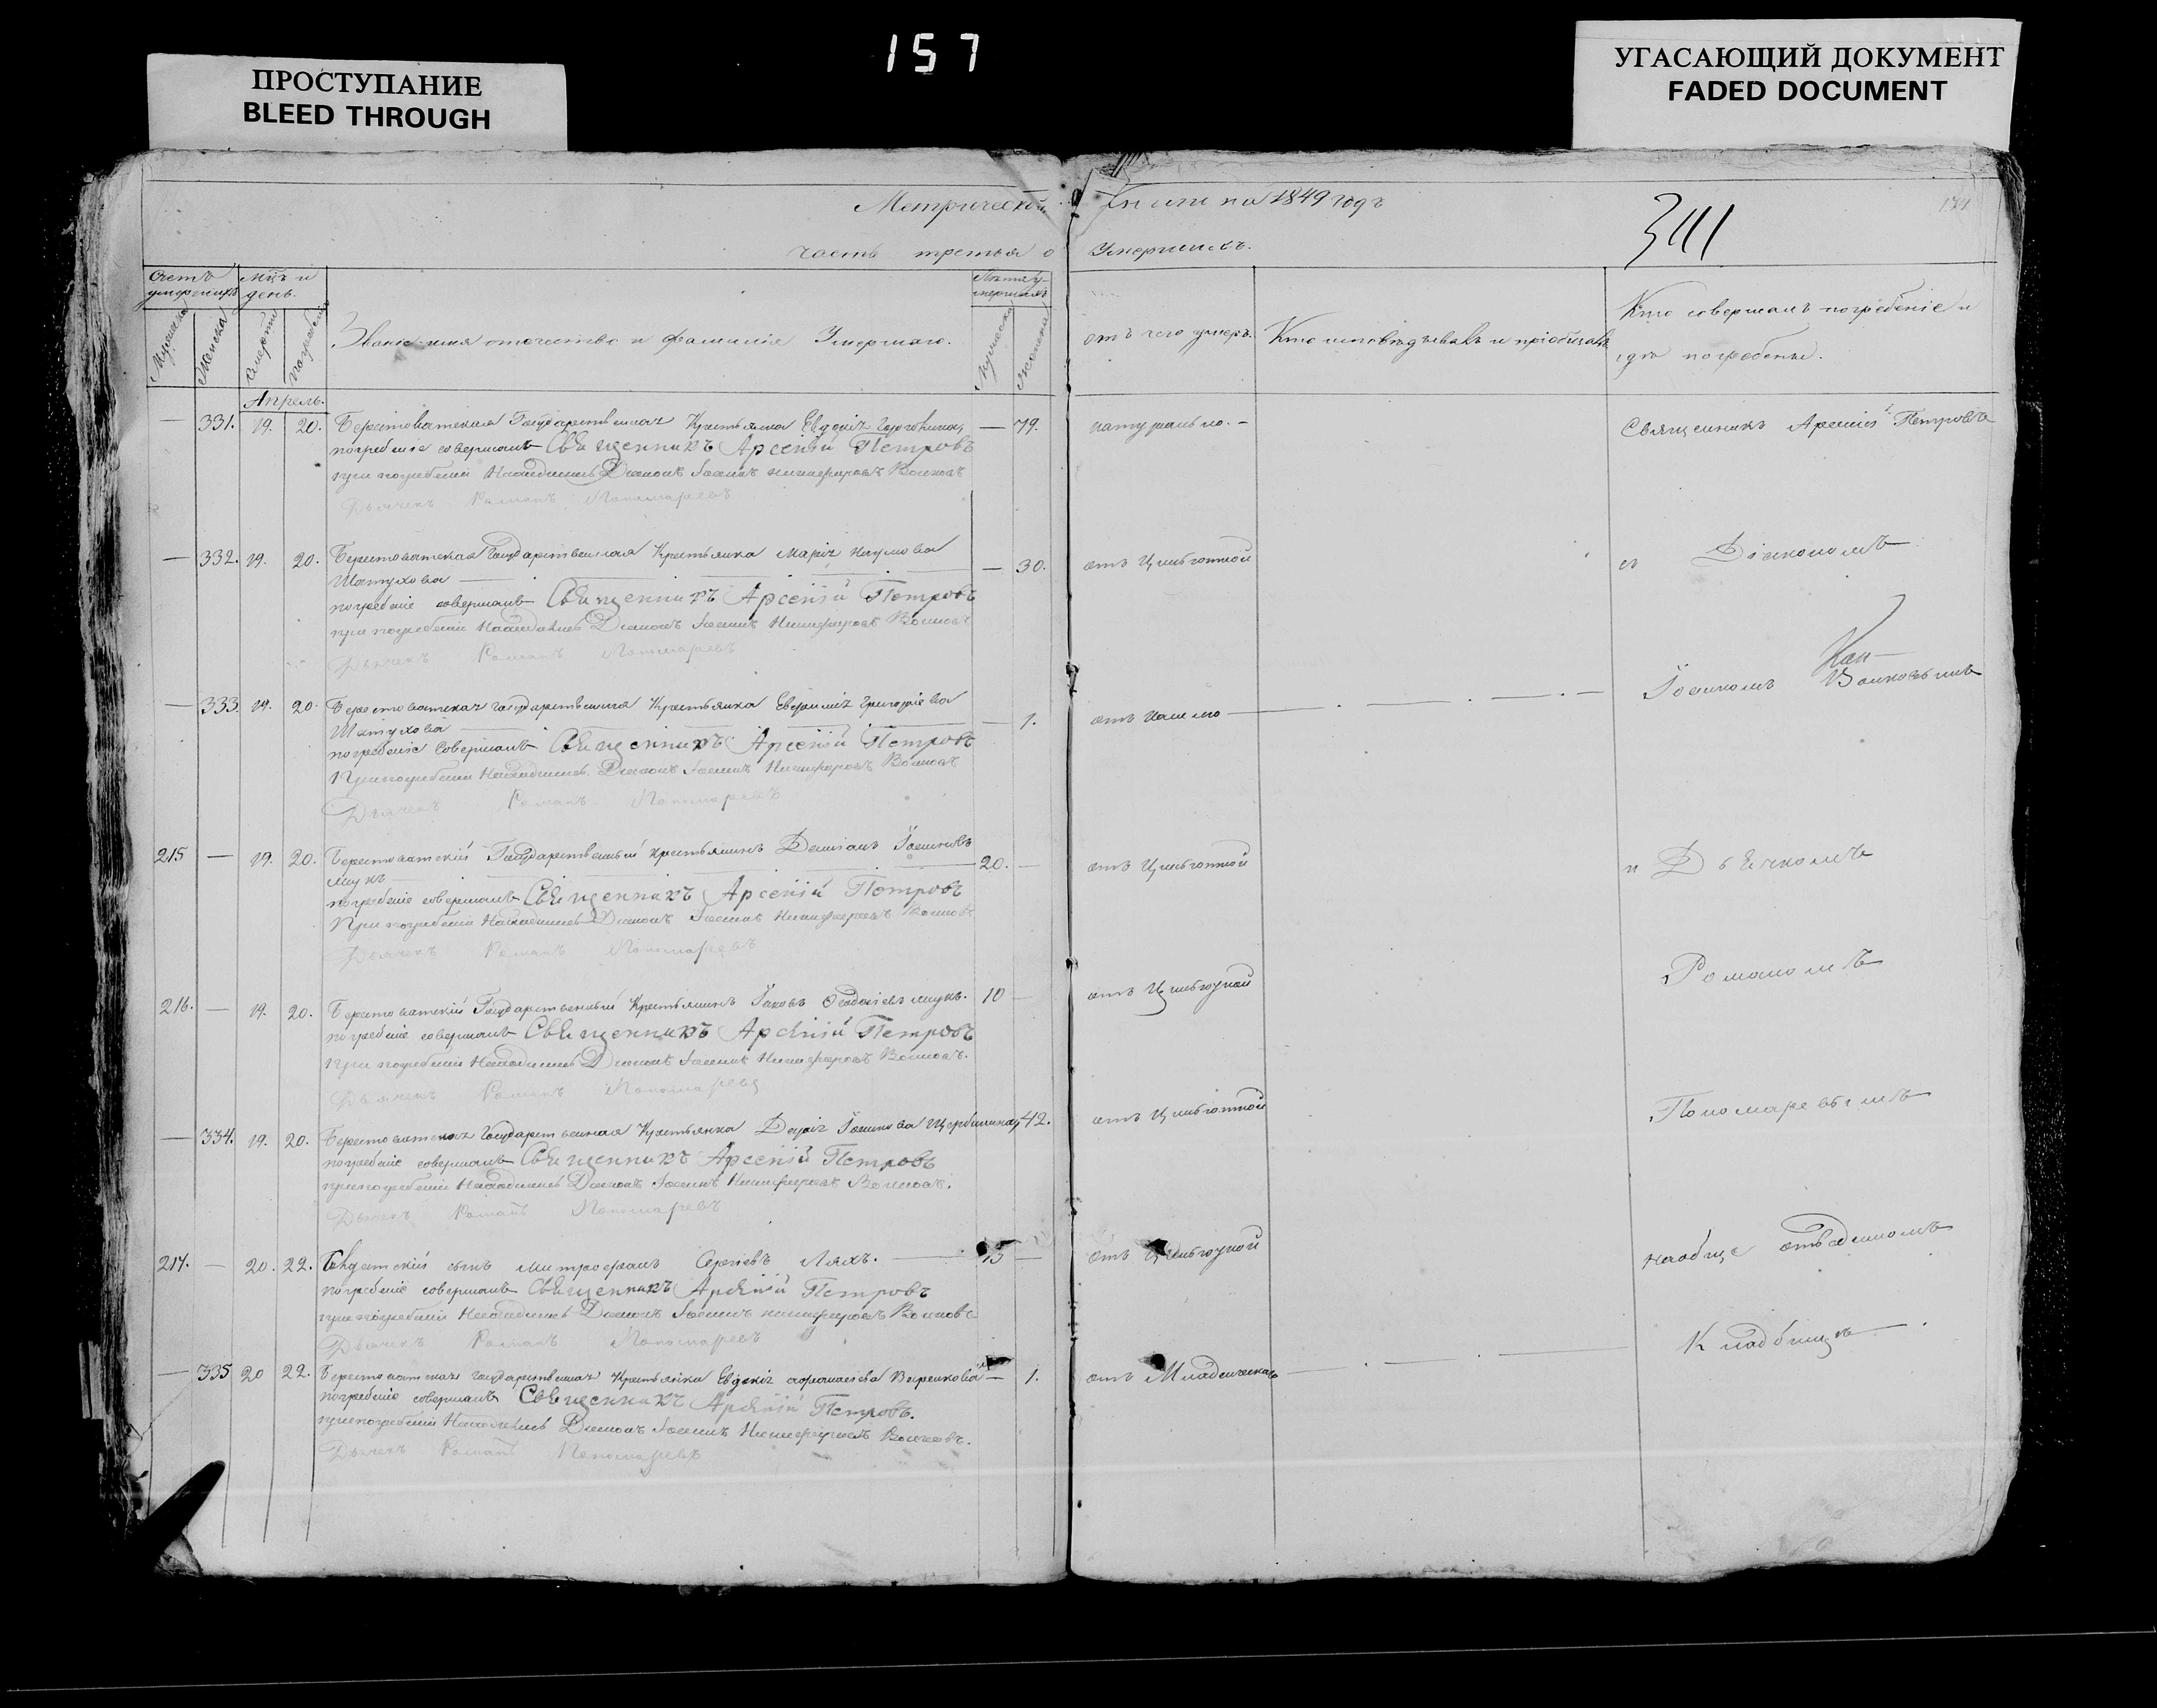 157
ПРОСТУПАНИЕ
BLEED THROUGH
УГАСАЮЩИЙ ДОКУМЕНТ
FADED DOCUMENT
Метрической книги на 1849 годъ
341
часть третья о Умершихъ.
Счетъ умершихъ
Мцъ и день.
Званіе имя отчество и фамилія Умершаго.
Лѣта умершихъ
отъ чего умеръ.
Кто исповѣдывалъ и пріобщалъ
Кто совершалъ погребеніе и гдѣ погребены.
Мужеска
Женска
Смерти
Погребенія
Мужеска
Женска
Апрель.
— 331. 19. 20. Берестоватская Государственная Крестьянка Евдокія — 79. натурально. — Священникъ Арсеній Петровъ
погребеніе совершалъ Священникъ Арсеній Петровъ
при погребеніи Находились Діаконъ Іоаннъ Никифоровъ Волковъ
Дьячекъ Романъ Пономаревъ
— 332. 19. 20. Берестоватская Государственная Крестьянка Марія Наумова — 30. отъ Цынготной съ Діакономъ
Шатухова
погребеніе совершалъ Священникъ Арсеній Петровъ
при погребеніи Находились Діаконъ Іоаннъ Никифоровъ Волковъ
Дьячекъ Романъ Пономаревъ
— 333. 19. 20. Берестоватская Государственная Крестьянка Евфимія Григоріева — 1. отъ кашлю — Іоанномъ Волковымъ
Шатухова
погребеніе совершалъ Священникъ Арсеній Петровъ
При погребеніи Находились Діаконъ Іоаннъ Никифоровъ Волковъ
Дьячекъ Романъ Пономаревъ
215 — 19. 20. Берестоватскій Государственный крестьянинъ Даміанъ Іоанновъ 20. — отъ Цынготной и Дьячкомъ
погребеніе совершалъ Священникъ Арсеній Петровъ
При погребеніи Находились Діаконъ Іоаннъ Никифоровъ Волковъ
Дьячекъ Романъ Пономаревъ
Романомъ
216. — 19. 20. Берестоватскій Государственный Крестьянинъ Іаковъ 10 — отъ Цынготной
погребеніе совершалъ Священникъ Арсеній Петровъ
При погребеніи Находились Діаконъ Іоаннъ Никифоровъ Волковъ.
Дьячекъ Романъ Пономаревъ
— 334. 19. 20. Берестоватская Государственная Крестьянка Дарія Іоаннова Щербинина 42. отъ Цынготной Пономаревымъ
погребеніе совершалъ Священникъ Арсеній Петровъ
при погребеніи Находились Діаконъ Іоаннъ Никифоровъ Волковъ.
Дьячекъ Романъ Пономаревъ
217. — 20. 22. сынъ Митрофанъ Сергіевъ Ляхъ. — отъ Цынготной на обще отведенномъ
погребеніе совершалъ Священникъ Арсеній Петровъ
при погребеніи Находились Діаконъ Іоаннъ Никифоровъ Волковъ
Дьячекъ Романъ Пономаревъ
Кладбищѣ
— 335 20 22. Берестоватская Государственная Крестьянка Евдокія — 1. отъ Младенческой
погребеніе совершалъ Священникъ Арсеній Петровъ.
при погребеніи Находились Діаконъ Іоаннъ Никифоровъ Волковъ.
Дьячекъ Романъ Пономаревъ